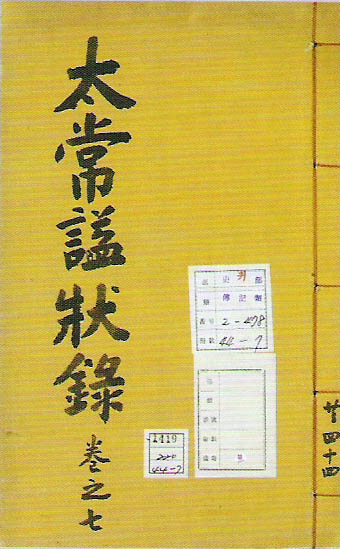 太常諡狀錄
卷之七
史 部
傳記類
2-478
44-7
1419
44-7
廿四十四